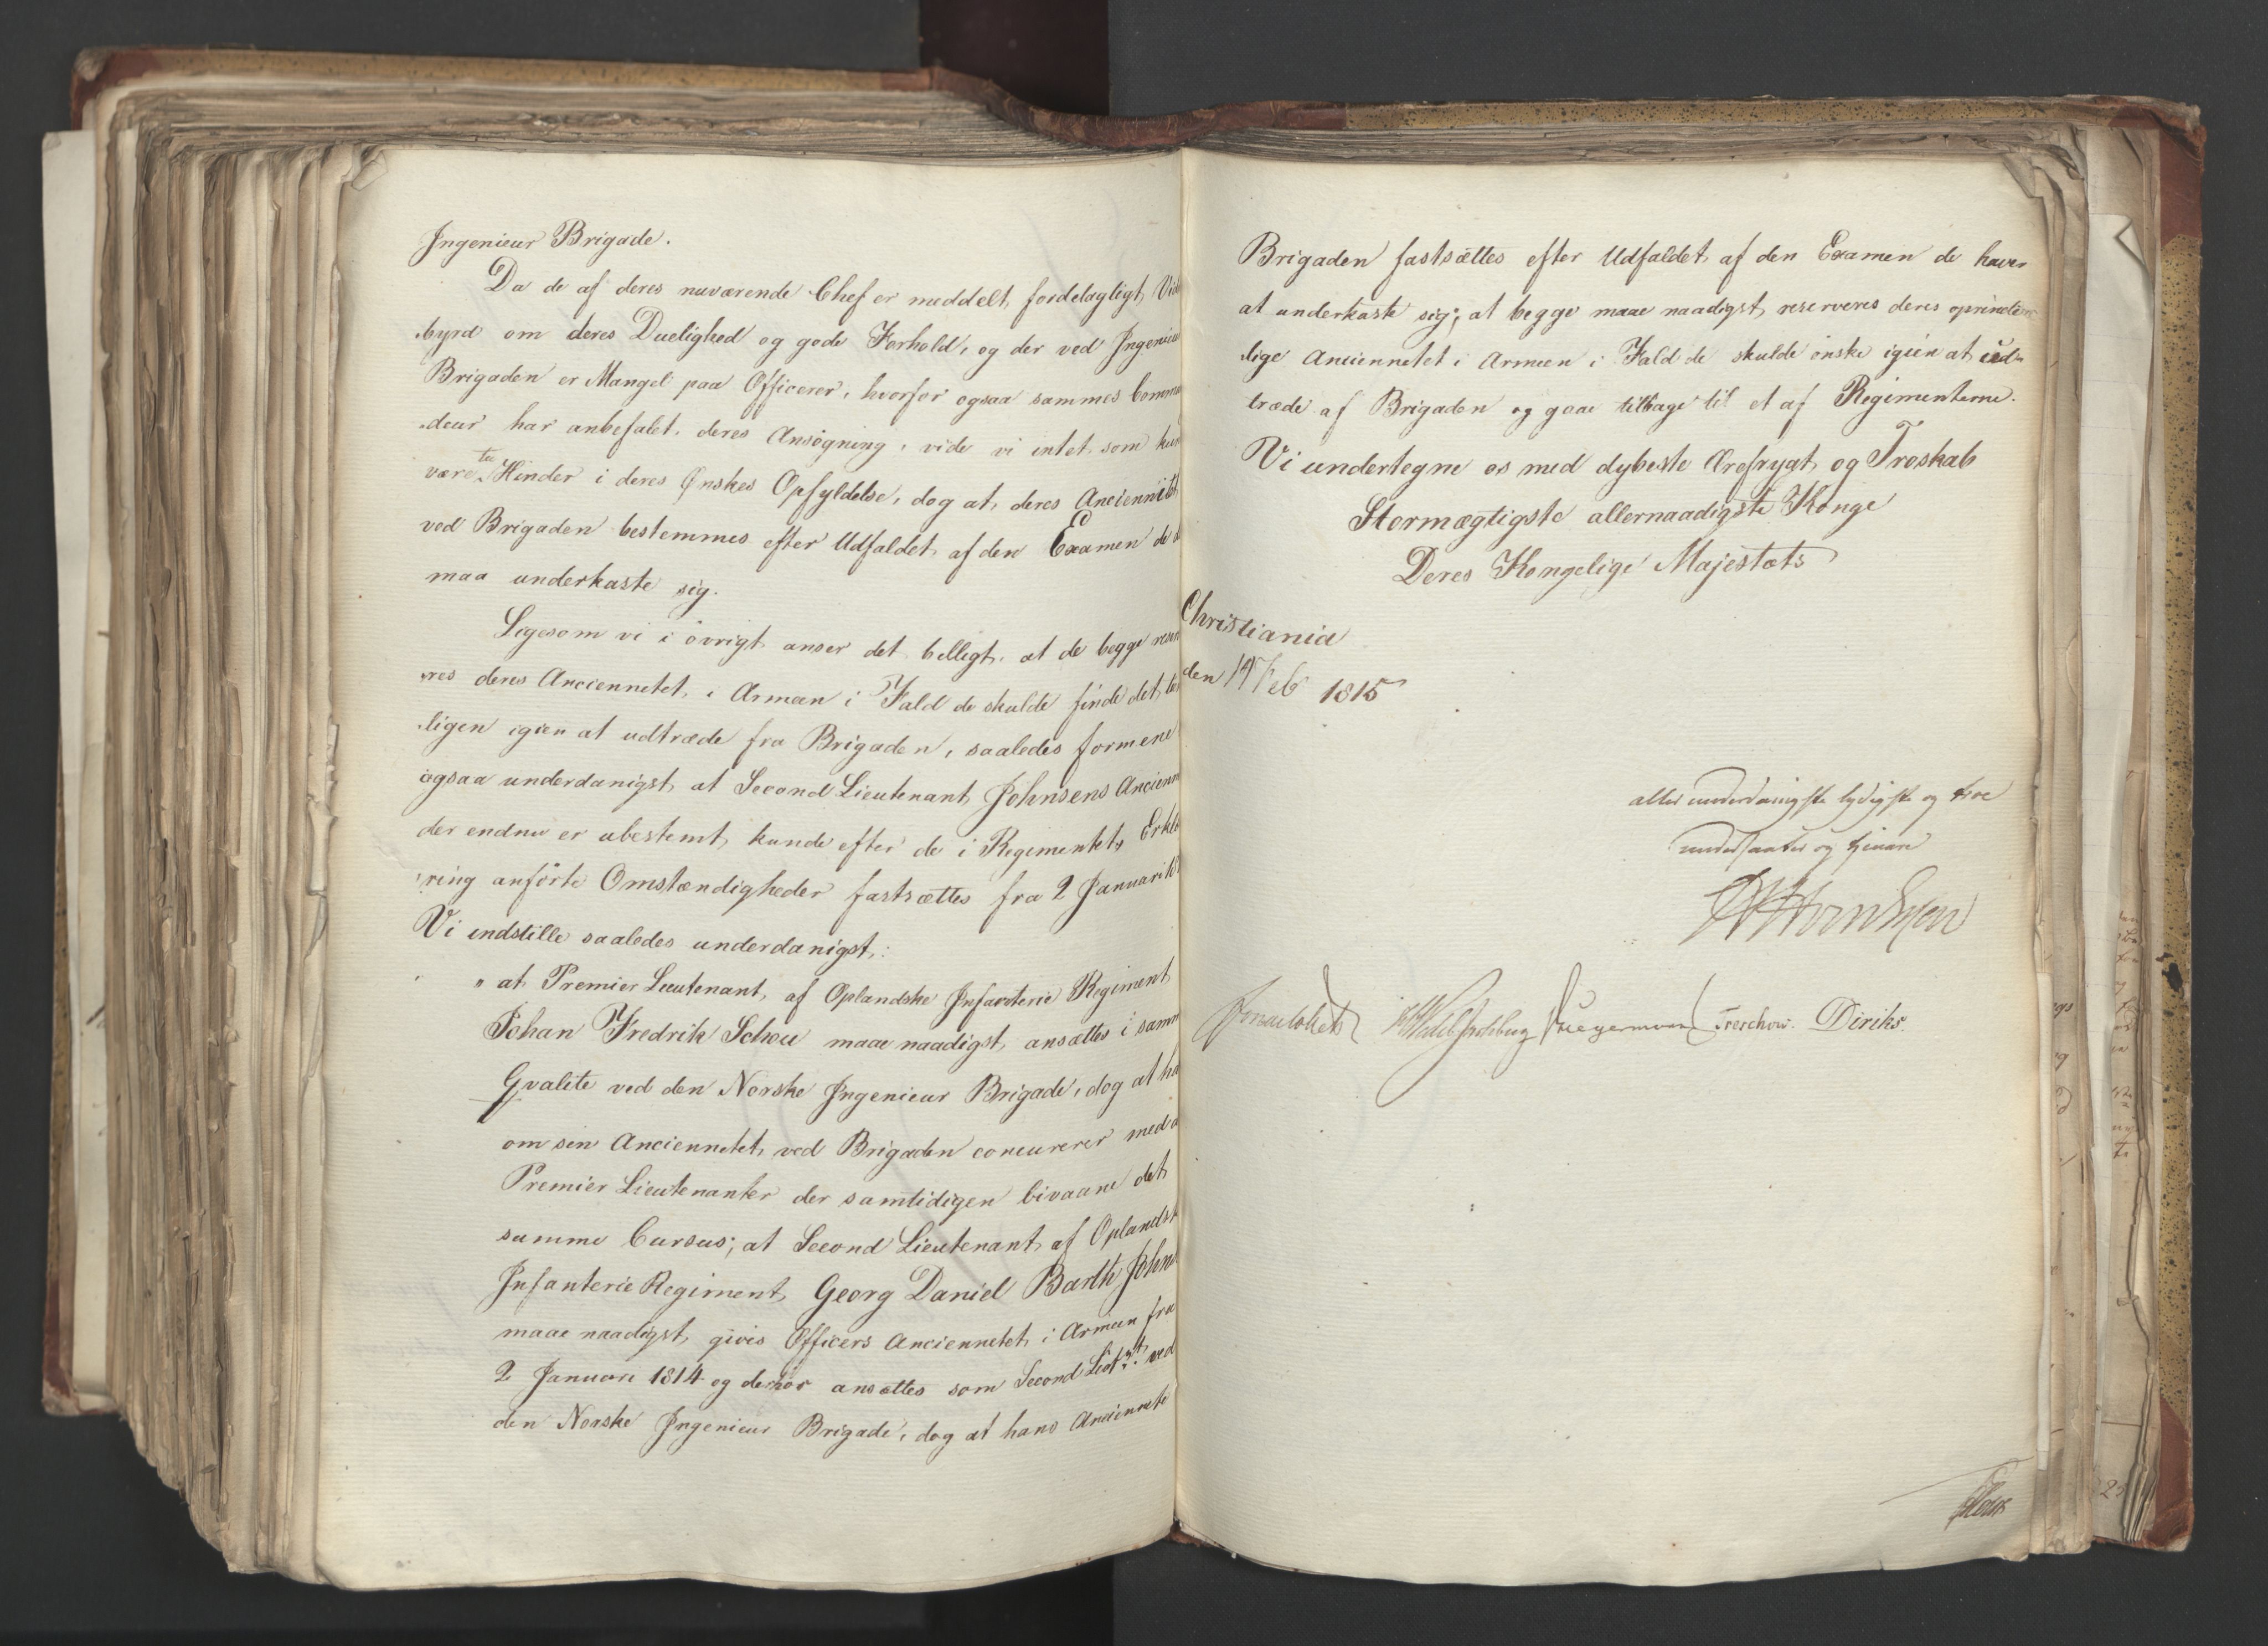 Ingenieur Brigade.
Da de af deres nuværende Chef er meddelt fordelagligt Vid
byrd om deres Duelighed og gode Forhold, og der ved Ingenieur
Brigaden er Mangel paa Officerer, hvorfor ogsaa sammes Comman
deur har anbefalet deres Ansögning, vide vi intet som kun
være til Hinder i deres Ønskes Opfyldelse, dog at deres Anciennitet
ved Brigaden bestemmes efter Udfaldet af den Examen de
maa underkaste sig.
Ligesom vi i övrigt anser det billigt at de begge reser
res deres Anciennetet i Armeen i Fald de skulde finde det
ligen igien at udtræde fra Brigaden, saaledes formene
ogsaa underdanigst at Second Lieutenant Johnsens Ancienn
der endnu er ubestemt, kunde efter de i Regimentets Erklæ
ring anförte Omstændigheder fastsættes fra 2 Januari 18
Vi indstille saaledes underdanigst:
" at Premier Lieutenant af Oplandske Infanterie Regiment
Johan Fredrik Schou maae naadigst ansættes i samm
Qvalite ved den Norske Ingenieur Brigade, dog at ha
om sin Anciennetet ved Brigaden concurerer med
Premier Lieutenanter der samtidigen bivaane det
samme Cursus; at Second Lieutenant af Oplandsk
Infanterie Regiment Georg Daniel Barth Johns
maae naadigst givis Officers Anciennetet i Armeen fra
2 Januari 1814 og derhos ansættes som Second Lieut:nt ved
den Norske Ingenieur Brigade, dog at hans Anciennete
Brigaden fastsættes efter Udfaldet af den Examen de haver
at underkaste sig; at begge maae naadigst reserveres deres oprindte
lige Anciennetet i Armeen i Fald de skulde önske igien at ud-
træde af Brigaden og gaae tilbage til et af Regimenterne.
Vi undertegne os med dybeste Ærefrygt og Troskab
Stormægtigste allernaadigste Konge
Deres Kongelige Majestæts
Christiania
den 14 Feb 1815
allerunderdanigste lydigste og troe
undersaatter og tjenere
Sommerhielm HWedel Jarlsberg Krieger Treschow. Diriks.